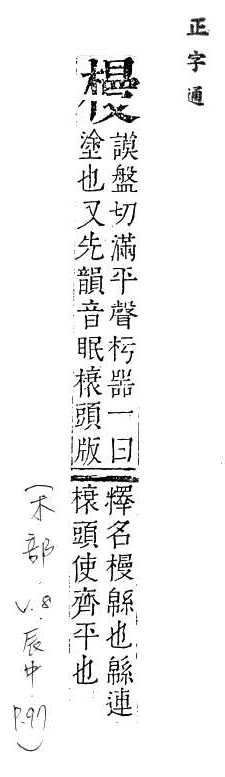 正字通
槾
謨盤切滿平聲杇器一曰
塗也又先韻音眠榱頭版
釋名槾緜也緜連
榱頭使齊平也
(木部 v.8 辰中 p.97)